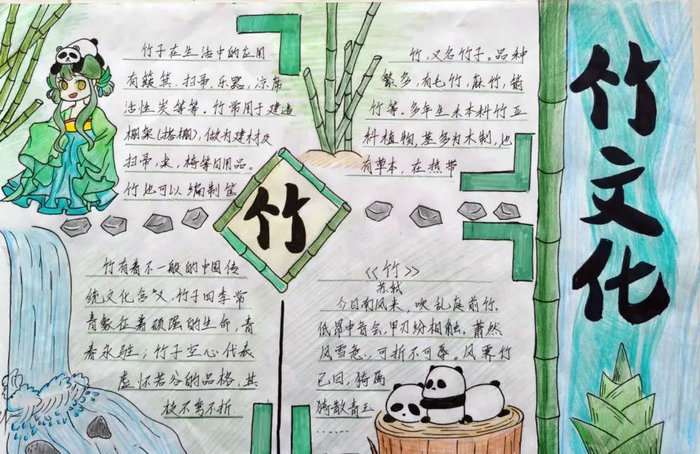 竹子在生活中的应用
有簸箕、扫帚、乐器、凉席
活性炭等等。竹常用于建造
棚架(搭棚),做为建材及
扫帚,桌,椅等日用品。
竹也可以编制筐
竹,又名竹子。品种
繁多,有毛竹,麻竹,箭
竹等。多年生木本科竹亚
科植物,茎多为木制,也
有草本,在热带
竹
竹有着不一般的中国传
统文化含义,竹子四季常
青象征着顽强的生命,青
春永驻;竹子空心代表
虚怀若谷的品格,其
枝不弯不折
《竹》
苏轼
今日南风来,吹乱庭前竹。
低昂中音会,甲刃纷相触。萧然
风雪色,可折不可辱。风霁竹
已回,猗猗
散青玉
......
竹文化